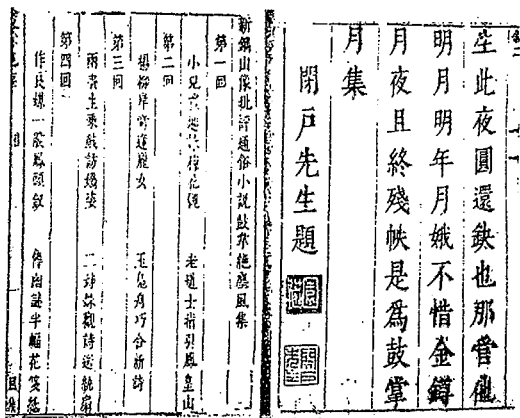 此夜圓還缺也那嘗
明月明年月娥不惜金鐏
月夜且終殘帙是為鼓掌
月集
閉戶先生題
新鐫出像批評通俗小說鼓掌絕塵風集
第一回
小兒童題咏梅花觀　老道士指引鳳皇山
第二回
楊柳岸奇逢麗女　玉鳧舟巧合新詩
第三回
兩書生乘戲訪嬌姿　二姊妹觀詩送紈扇
第四回
作良媒一股鳳頭釵　傳幽謎半幅花箋紙